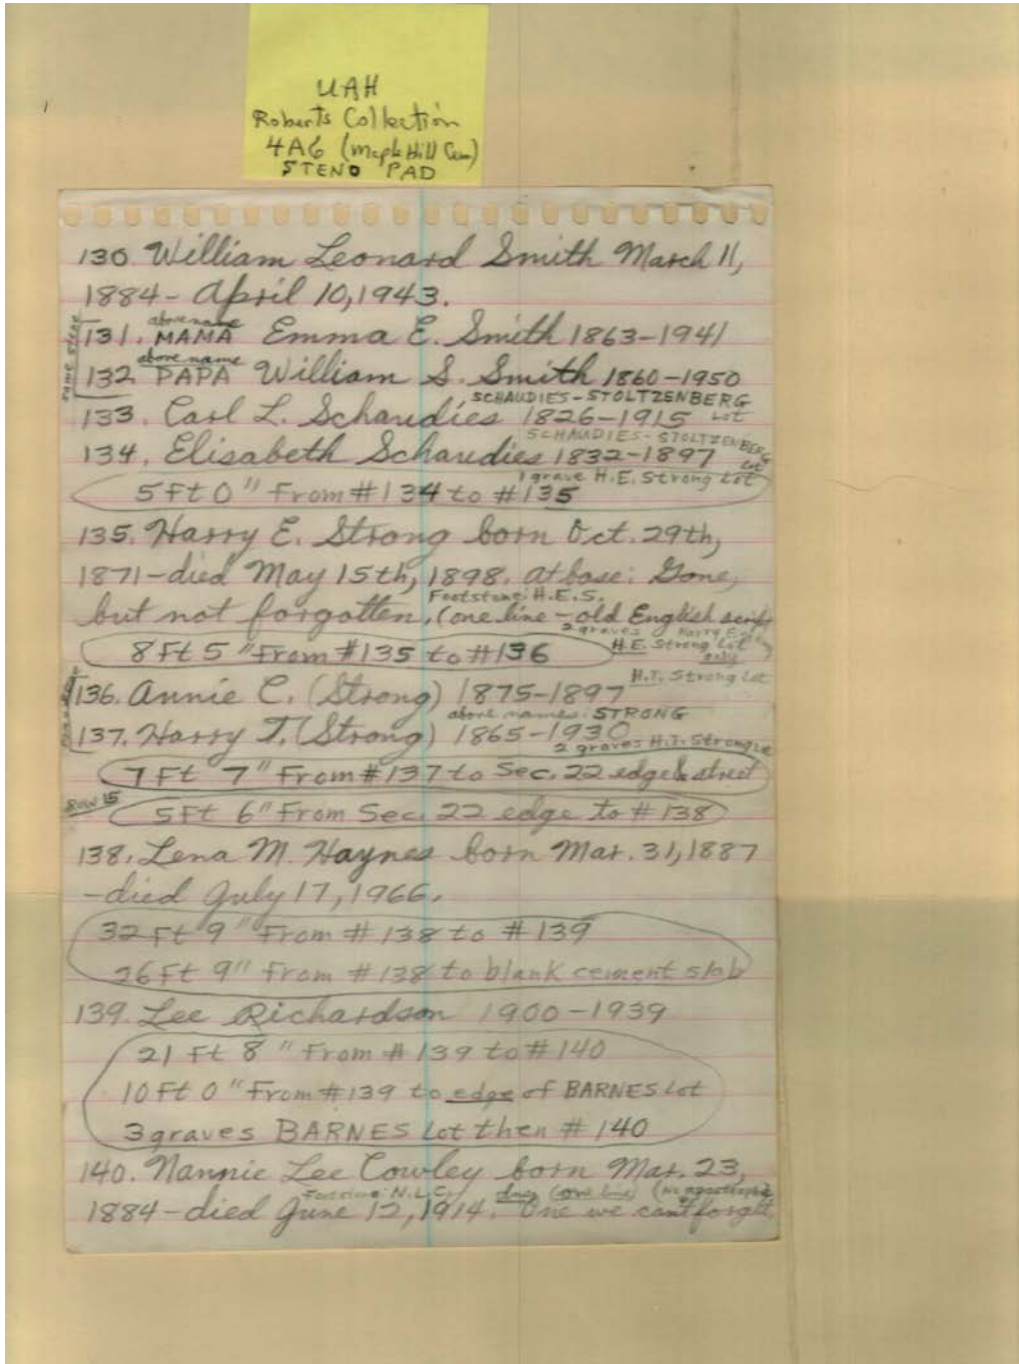 UAH
Roberts Collection
4A6 (Maple Hill Cem)
STENO PAD
130. William Leonard Smith March 11,
1884 - April 10, 1943.
above name
same stone
131. MAMA Emma E. Smith 1863-1941
above name
132. PAPA William S. Smith 1860-1950
SCHAUDIES-STOLTZENBERG
133. Carl L. Schaudies 1826-1915 Lot
SCHAUDIES-STOLTZENBERG
134. Elisabeth Schaudies 1832-1897 Lot
1 grave H.E. Strong Lot
5 Ft 0" From #134 to #135
135. Harry E. Strong born Oct. 29th,
1871-died May 15th, 1898. At base: Gone,
Footstone: H.E.S.
but not forgotten. (one line - old English script
2 graves Harry E.
8 Ft 5" From #135 to #136 H.E. Strong Lot
only
H.T. Strong Lot
136. Annie C. (Strong) 1875-1897
above names: STRONG
137. Harry T. (Strong) 1865-1930
2 graves H.T. Strong
7 Ft 7" From #137 to Sec. 22 edge & street
Row 15
5 Ft 6" From Sec. 22 edge to #138
138. Lena M. Haynes born Mar. 31, 1887
-died July 17, 1966.
32 Ft 9" From #138 to #139
26 Ft 9" From #138 to blank cement slab
139. Lee Richardson 1900-1939
21 Ft 8" From #139 to #140
10 Ft 0" From #139 to edge of BARNES Lot
3 graves BARNES Lot then #140
140. Nannie Lee Cowley born Mar. 23,
Footstone: N.L.C. (one line) (no apostrophe
1884-died June 12, 1914. One we cant forget.